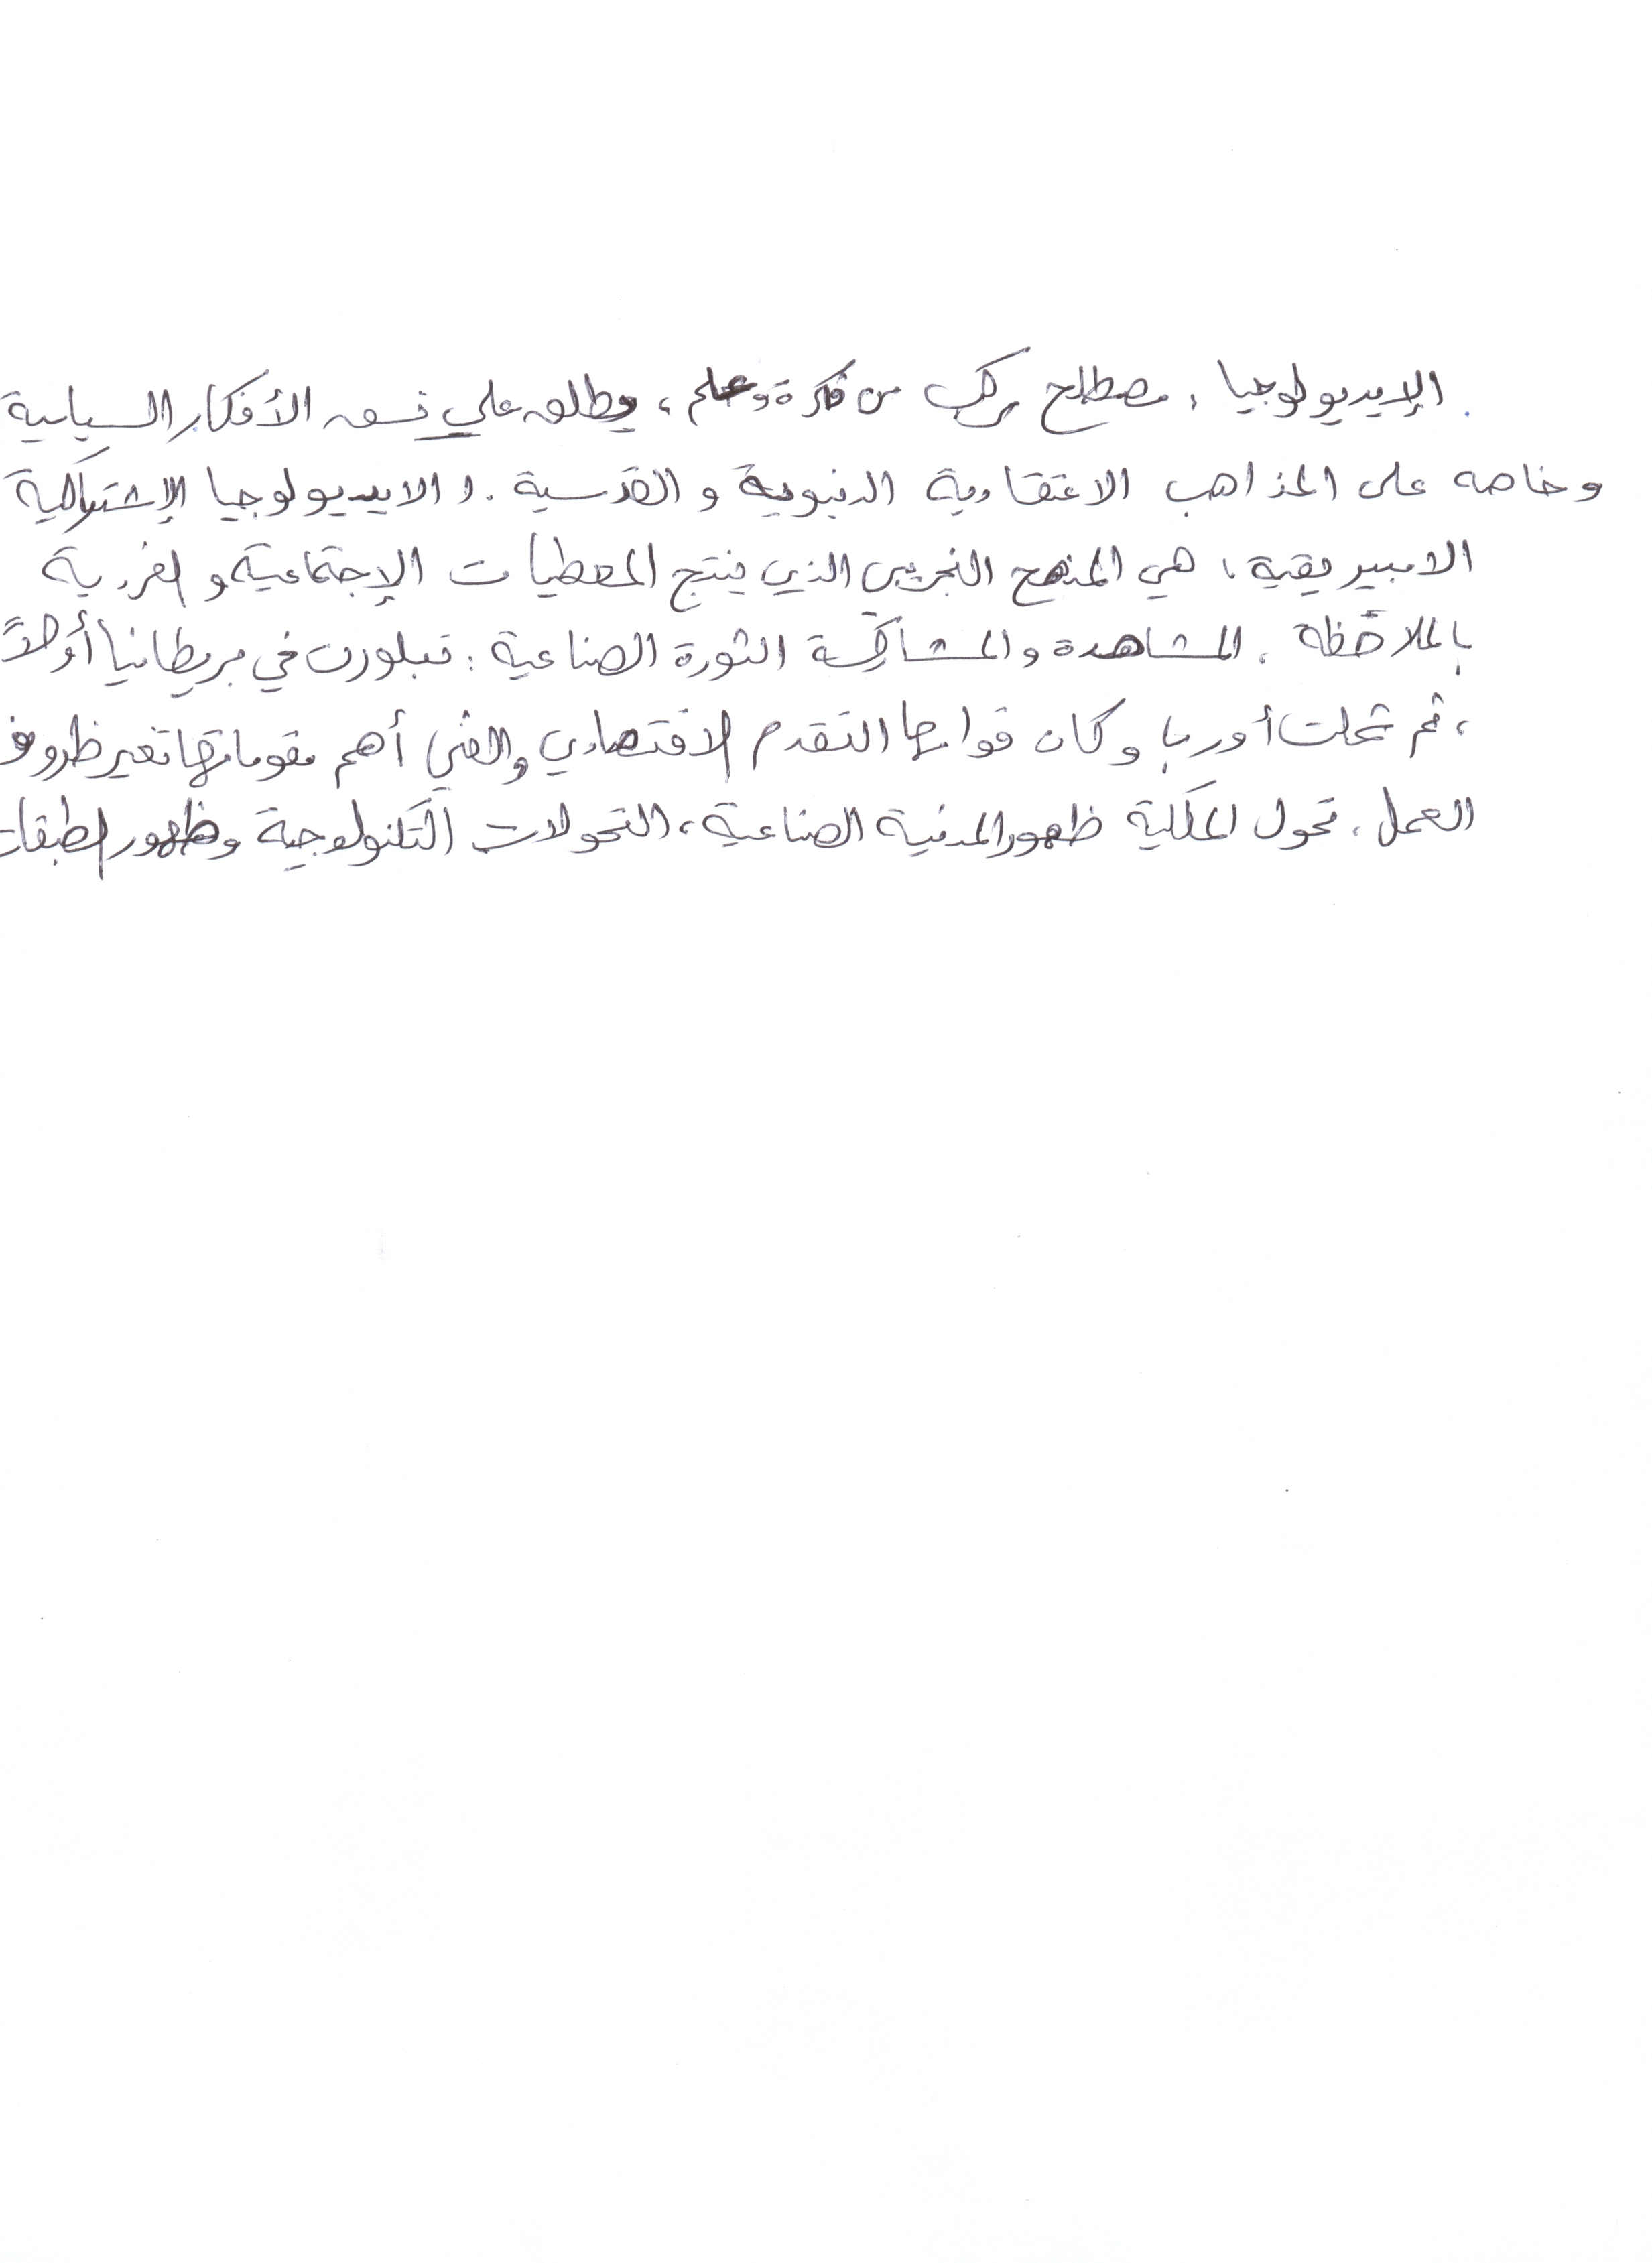 . الإيديولوجيا ، مصطلح مركب من فكرة وعلم ، ويطلق علي نسق الأفكار السياسية
وخاصه على المذاهب الاعتقادية الدنيوية و القدسية . الايديولوجيا الإشتراكية
الامبيريقية ، هي المنهج التجريبي الذي ينتج المعطيات الإجتماعية و الفردية
بالملاحظة ، المشاهدة والمشاركة الثورة الصناعية : تبلورت في بريطانيا أولاً
، ثم شملت أوربا وكان قوامها التقدم الاقتصادي والفني أهم مقوماتها تغير ظروف
العمل ، تحول الملكية ظهور المدنية الصناعية ، التحولات التكنولوجية وظهور الطبقات